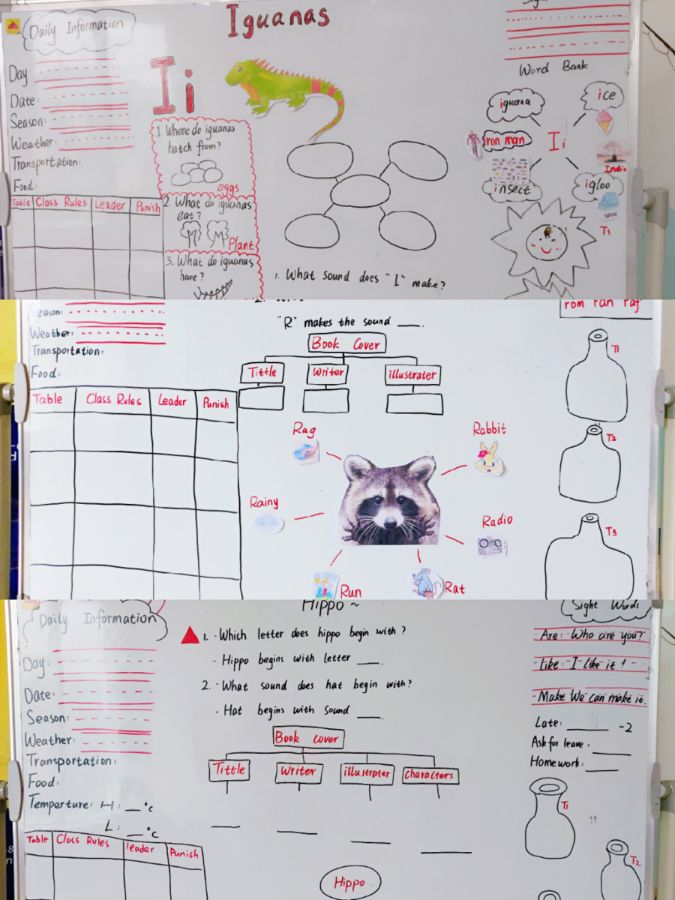 Daily Information
Iguanas
Day:
Date:
Season:
Weather:
Transportation:
Food:
Table Class Rules Leader Punish
Ii
1. Where do iguanas
hatch from?
eggs
2. What do iguanas
eat?
Plant
3. What do iguanas
have?
1. What sound does "I" make?
Word Bank
iguana
ice
iron man
Ii
India
insect
igloo
igloo
T1
Season:
Weather:
Transportation:
Food:
Table Class Rules Leader Punish
"R" makes the sound ___.
Book Cover
Tittle Writer illustrater
Rag
Rabbit
Rainy
Radio
Run
Rat
rom ran raf
T1
T2
T3
Daily Information
Day:
Date:
Season:
Weather:
Transportation:
Food:
Temperture: H: __°c
L: __°c
Table Class Rules leader Punish
Hippo ~
1. Which letter does hippo begin with?
Hippo begins with letter ___.
2. What sound does hat begin with?
Hat begins with sound ___
Book cover
Tittle Writer illustrater characters
Hippo
Sight Words
Are: Who are you?
like: I like it !
Make We can make it.
Late: ____ -2
Ask for leave: ____
Homework: ____
T1
T2